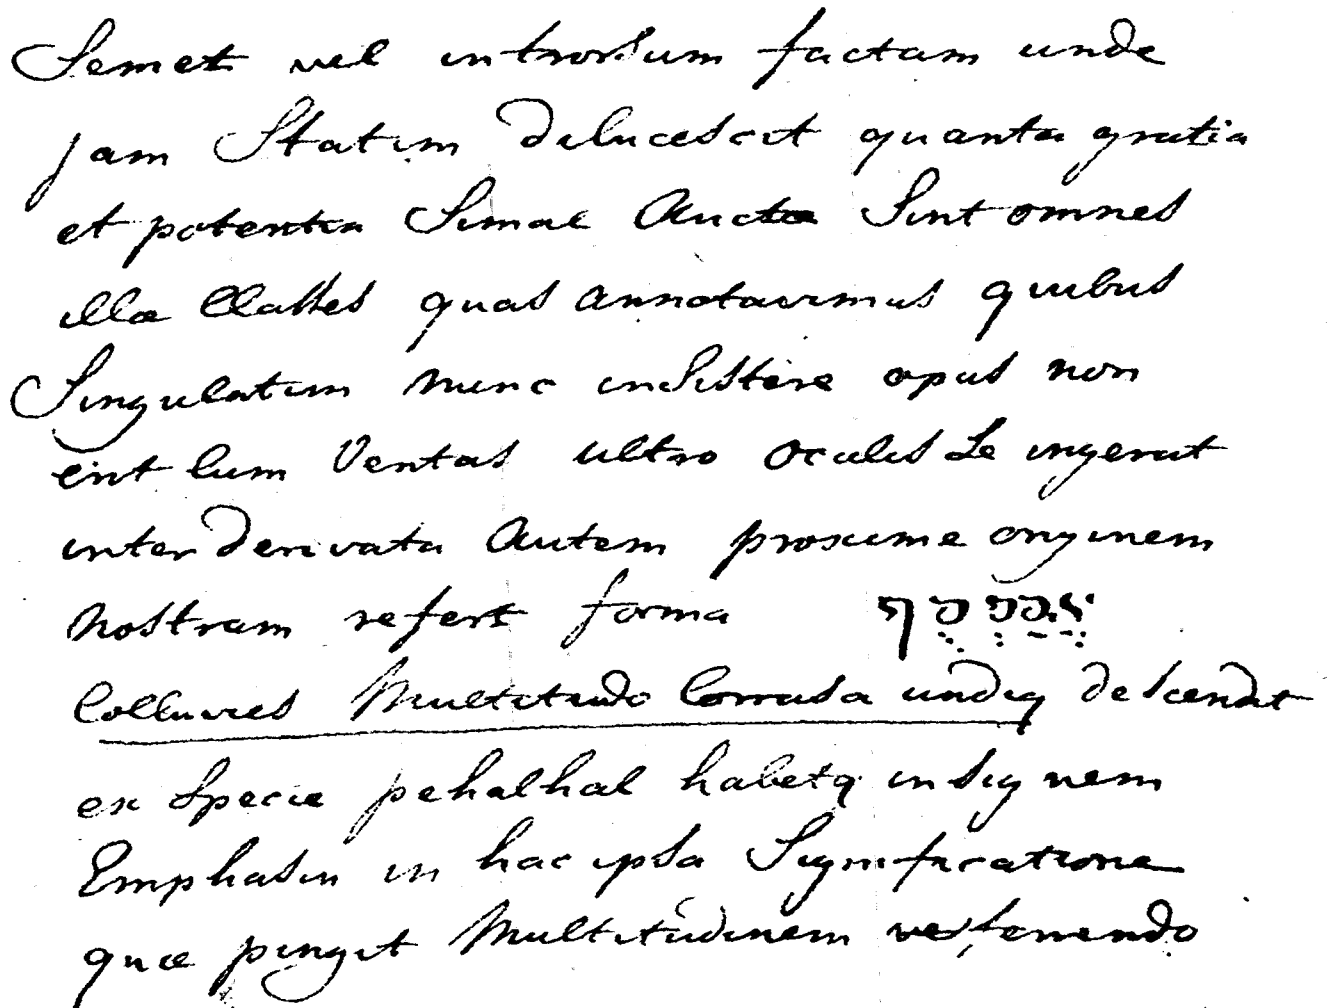 Semet vel introrsum factam unde
jam Statim delucescit quanta gratia
et potentia Simal Aucta Sint omnes
illæ Classes quas annotavimus quibus
Singulatim nunc insistere opus non
erit Cum Veritas ultro oculis Se ingerat
inter derivata Autem proxime originem
nostram refert forma
Colluvies Multitudo Corrasa undiq descendit
ex Specie pehalhal habetq insignem
Emphasin in hac ipsa Significatione
quæ pingit Multitudinem